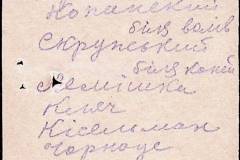 Копанский
біля волів
Скрупський
біля коней
Семішка
Княч
Кісельман
Чорноус